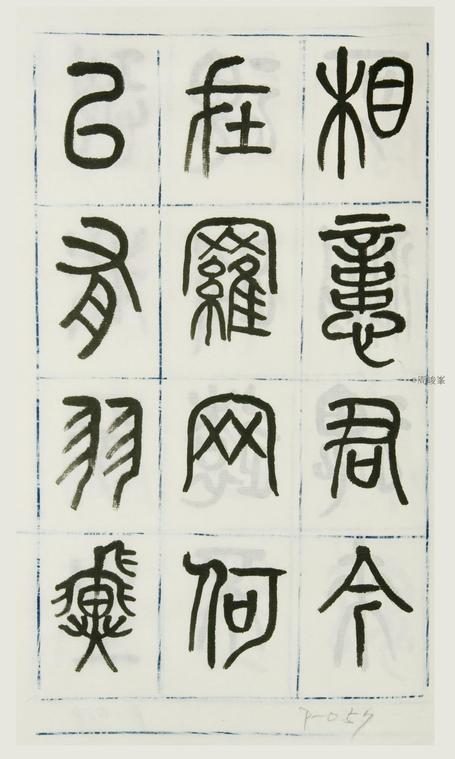 相憶君今
在羅网何
以有羽翼